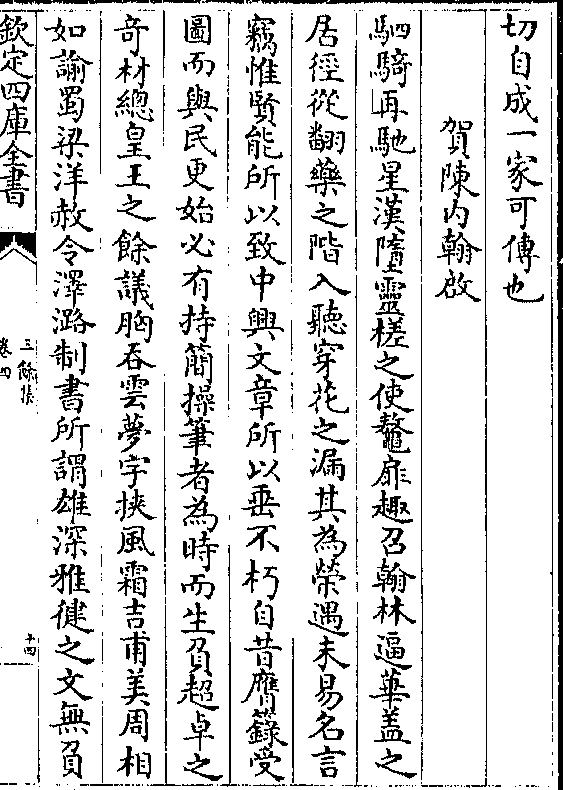 切自成一家可傳也
賀陳内翰啟
駟騎再馳星漢墮靈槎之使鼇扉趣召翰林逼華蓋之
居徑從翻藥之階入聽穿花之漏其為榮遇未易名言
竊惟賢能所以致中興文章所以垂不朽自昔膺籙受
圖而與民更始必有持簡操筆者為時而生負超卓之
奇材總皇王之餘議胸吞雲夢字挾風霜吉甫美周相
如諭蜀梁洋赦令澤潞制書所謂雄深雅健之文無負
欽定四庫全書
三餘集
卷四
十四